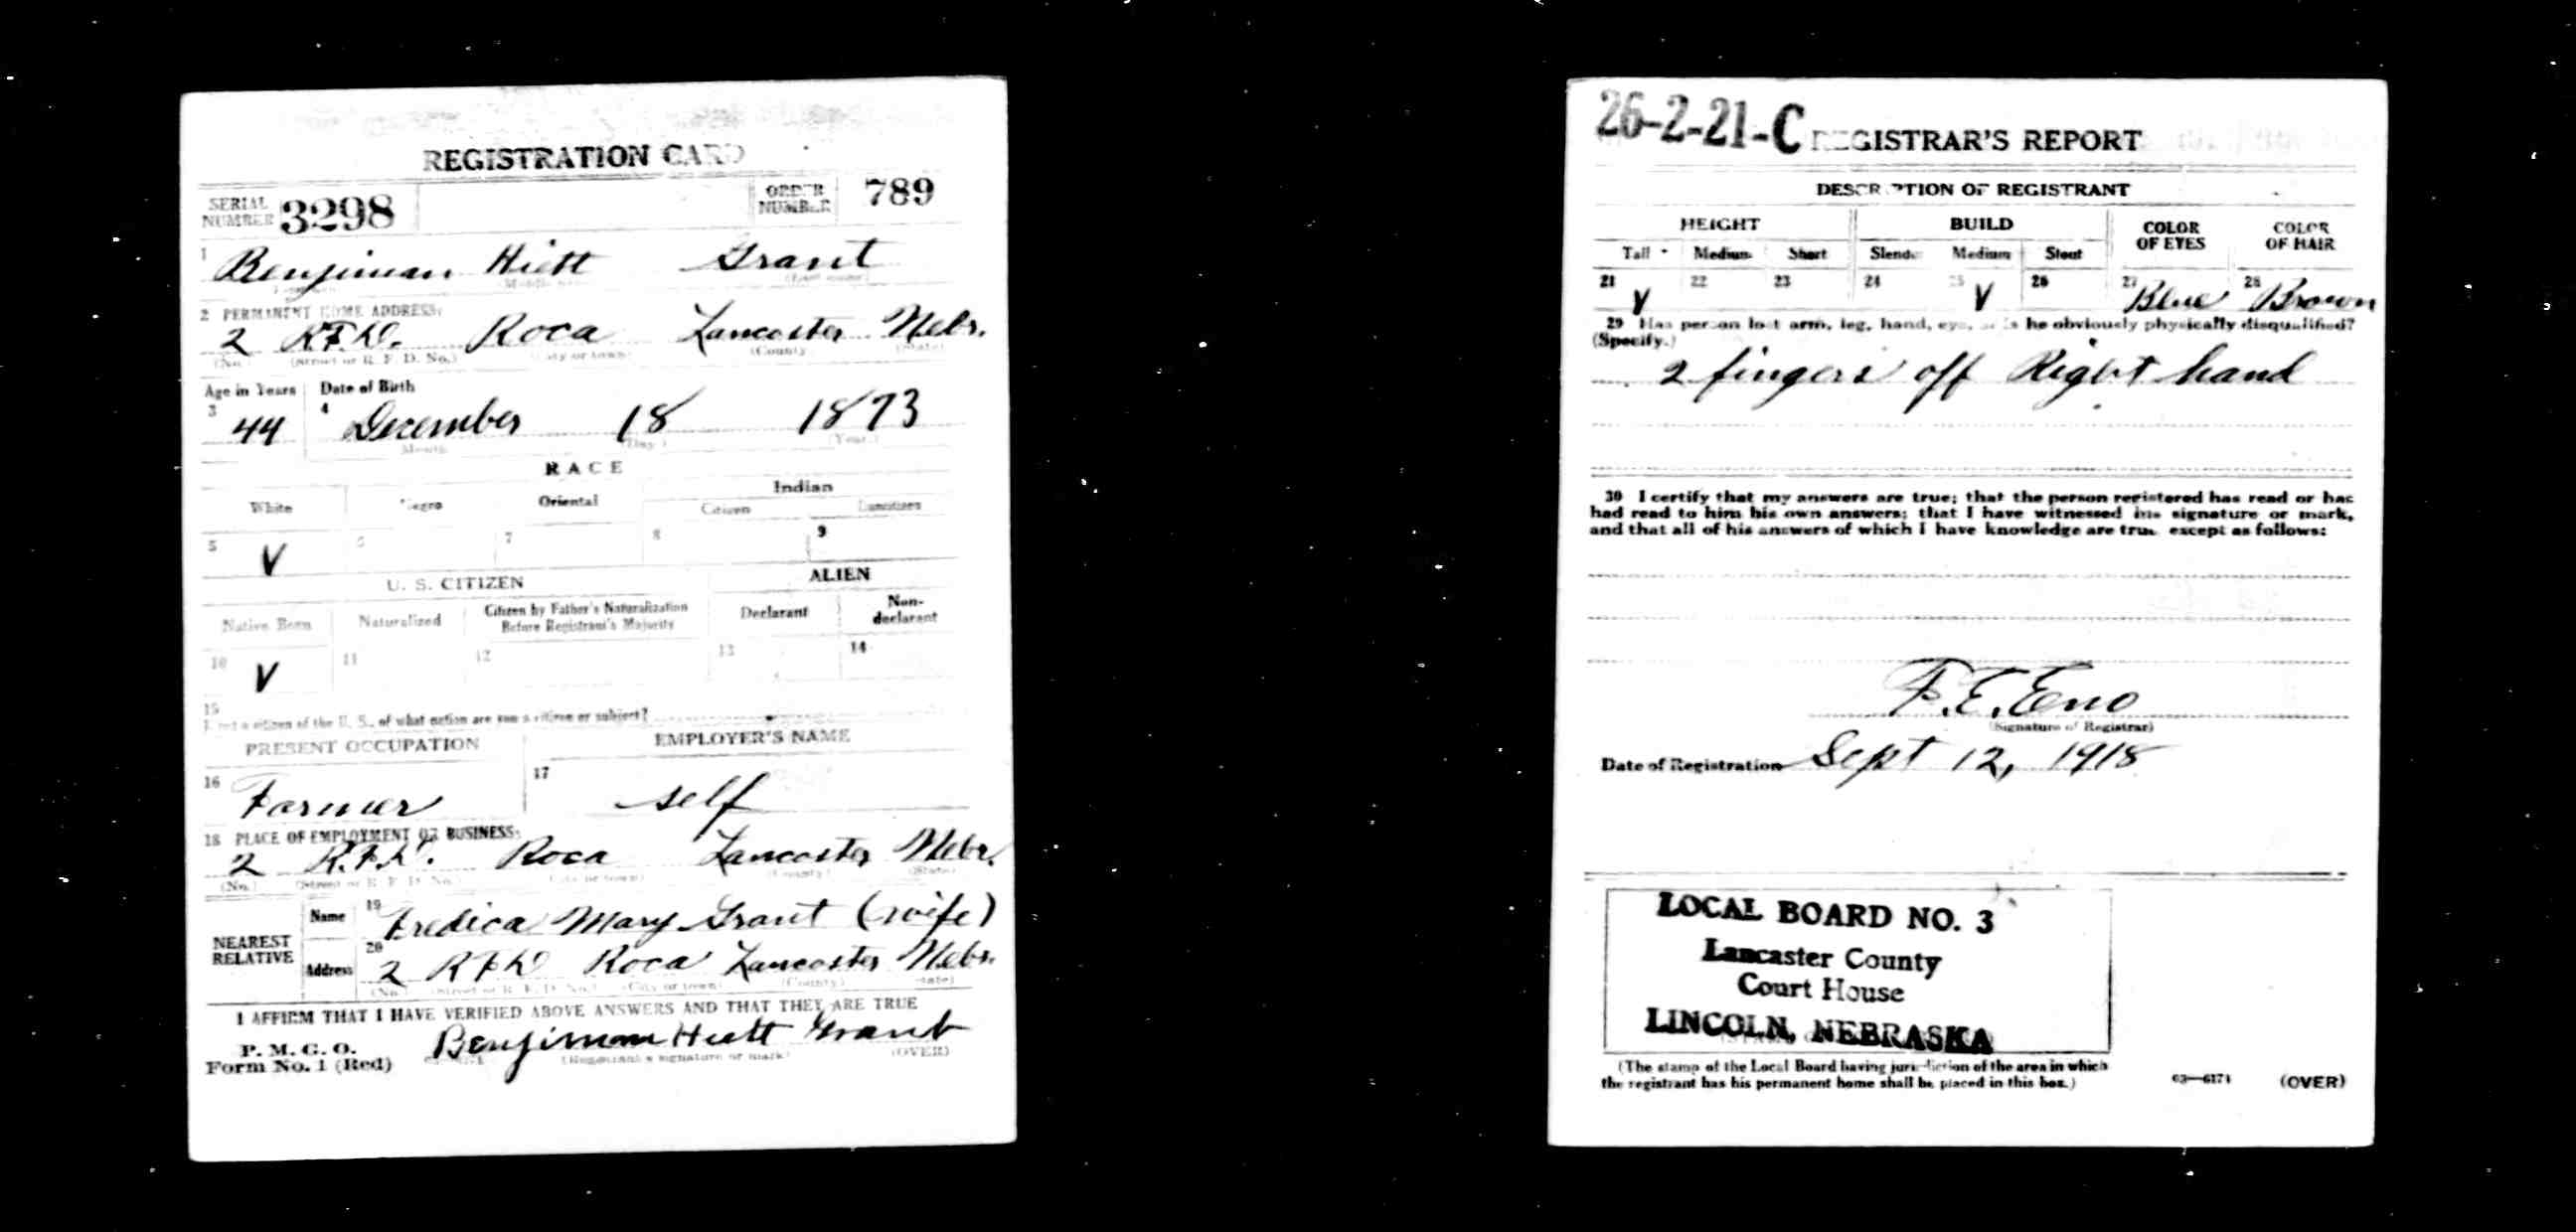 REGISTRATION CARD
SERIAL NUMBER 3298 ORDER NUMBER 789
1 Benjiman Hiett Grant
2 PERMANENT HOME ADDRESS:
2 R.F.D. Roca Lancaster Nebr.
(No.) (Street or R. F. D. No.) (City or town) (County) (State)
Age in Years Date of Birth
3 44 4 December 18 1873
Month (Day) (Year.)
RACE
White Negro Oriental Indian
Citizen Noncitizen
5 V 6 7 8 9
U. S. CITIZEN ALIEN
Native Born Naturalized Citizen by Father's Naturalization Before Registrant's Majority Declarant Non-declarant
10 V 11 12 13 14
15
If not a citizen of the U. S., of what nation are you a citizen or subject?
PRESENT OCCUPATION EMPLOYER'S NAME
16 Farmer 17 self
18 PLACE OF EMPLOYMENT OR BUSINESS:
2 R.F.D. Roca Lancaster Nebr.
(No.) (Street or R. F. D. No.) (City or town) (County) (State)
NEAREST RELATIVE Name 19 Fredica Mary Grant (wife)
Address 20 2 RFD Roca Lancaster Nebr.
(No.) (Street or R. F. D. No.) (City or town) (County) (State)
I AFFIRM THAT I HAVE VERIFIED ABOVE ANSWERS AND THAT THEY ARE TRUE
P. M. G. O.
Form No. 1 (Red) Benjiman Hiett Grant
(Registrant's signature or mark) (OVER)
26-2-21-C REGISTRAR'S REPORT
DESCRIPTION OF REGISTRANT
HEIGHT BUILD COLOR OF EYES COLOR OF HAIR
Tall Medium Short Slender Medium Stout
21 V 22 23 24 25 V 26 27 Blue 28 Brown
29 Has person lost arm, leg, hand, eye, or is he obviously physically disqualified?
(Specify.)
2 fingers off Right hand
30 I certify that my answers are true; that the person registered has read or has
had read to him his own answers; that I have witnessed his signature or mark,
and that all of his answers of which I have knowledge are true, except as follows:
F.E. Eno
(Signature of Registrar)
Date of Registration Sept 12, 1918
LOCAL BOARD NO. 3
Lancaster County
Court House
LINCOLN, NEBRASKA
(The stamp of the Local Board having jurisdiction of the area in which
the registrant has his permanent home shall be placed in this box.)
03—6171 (OVER)